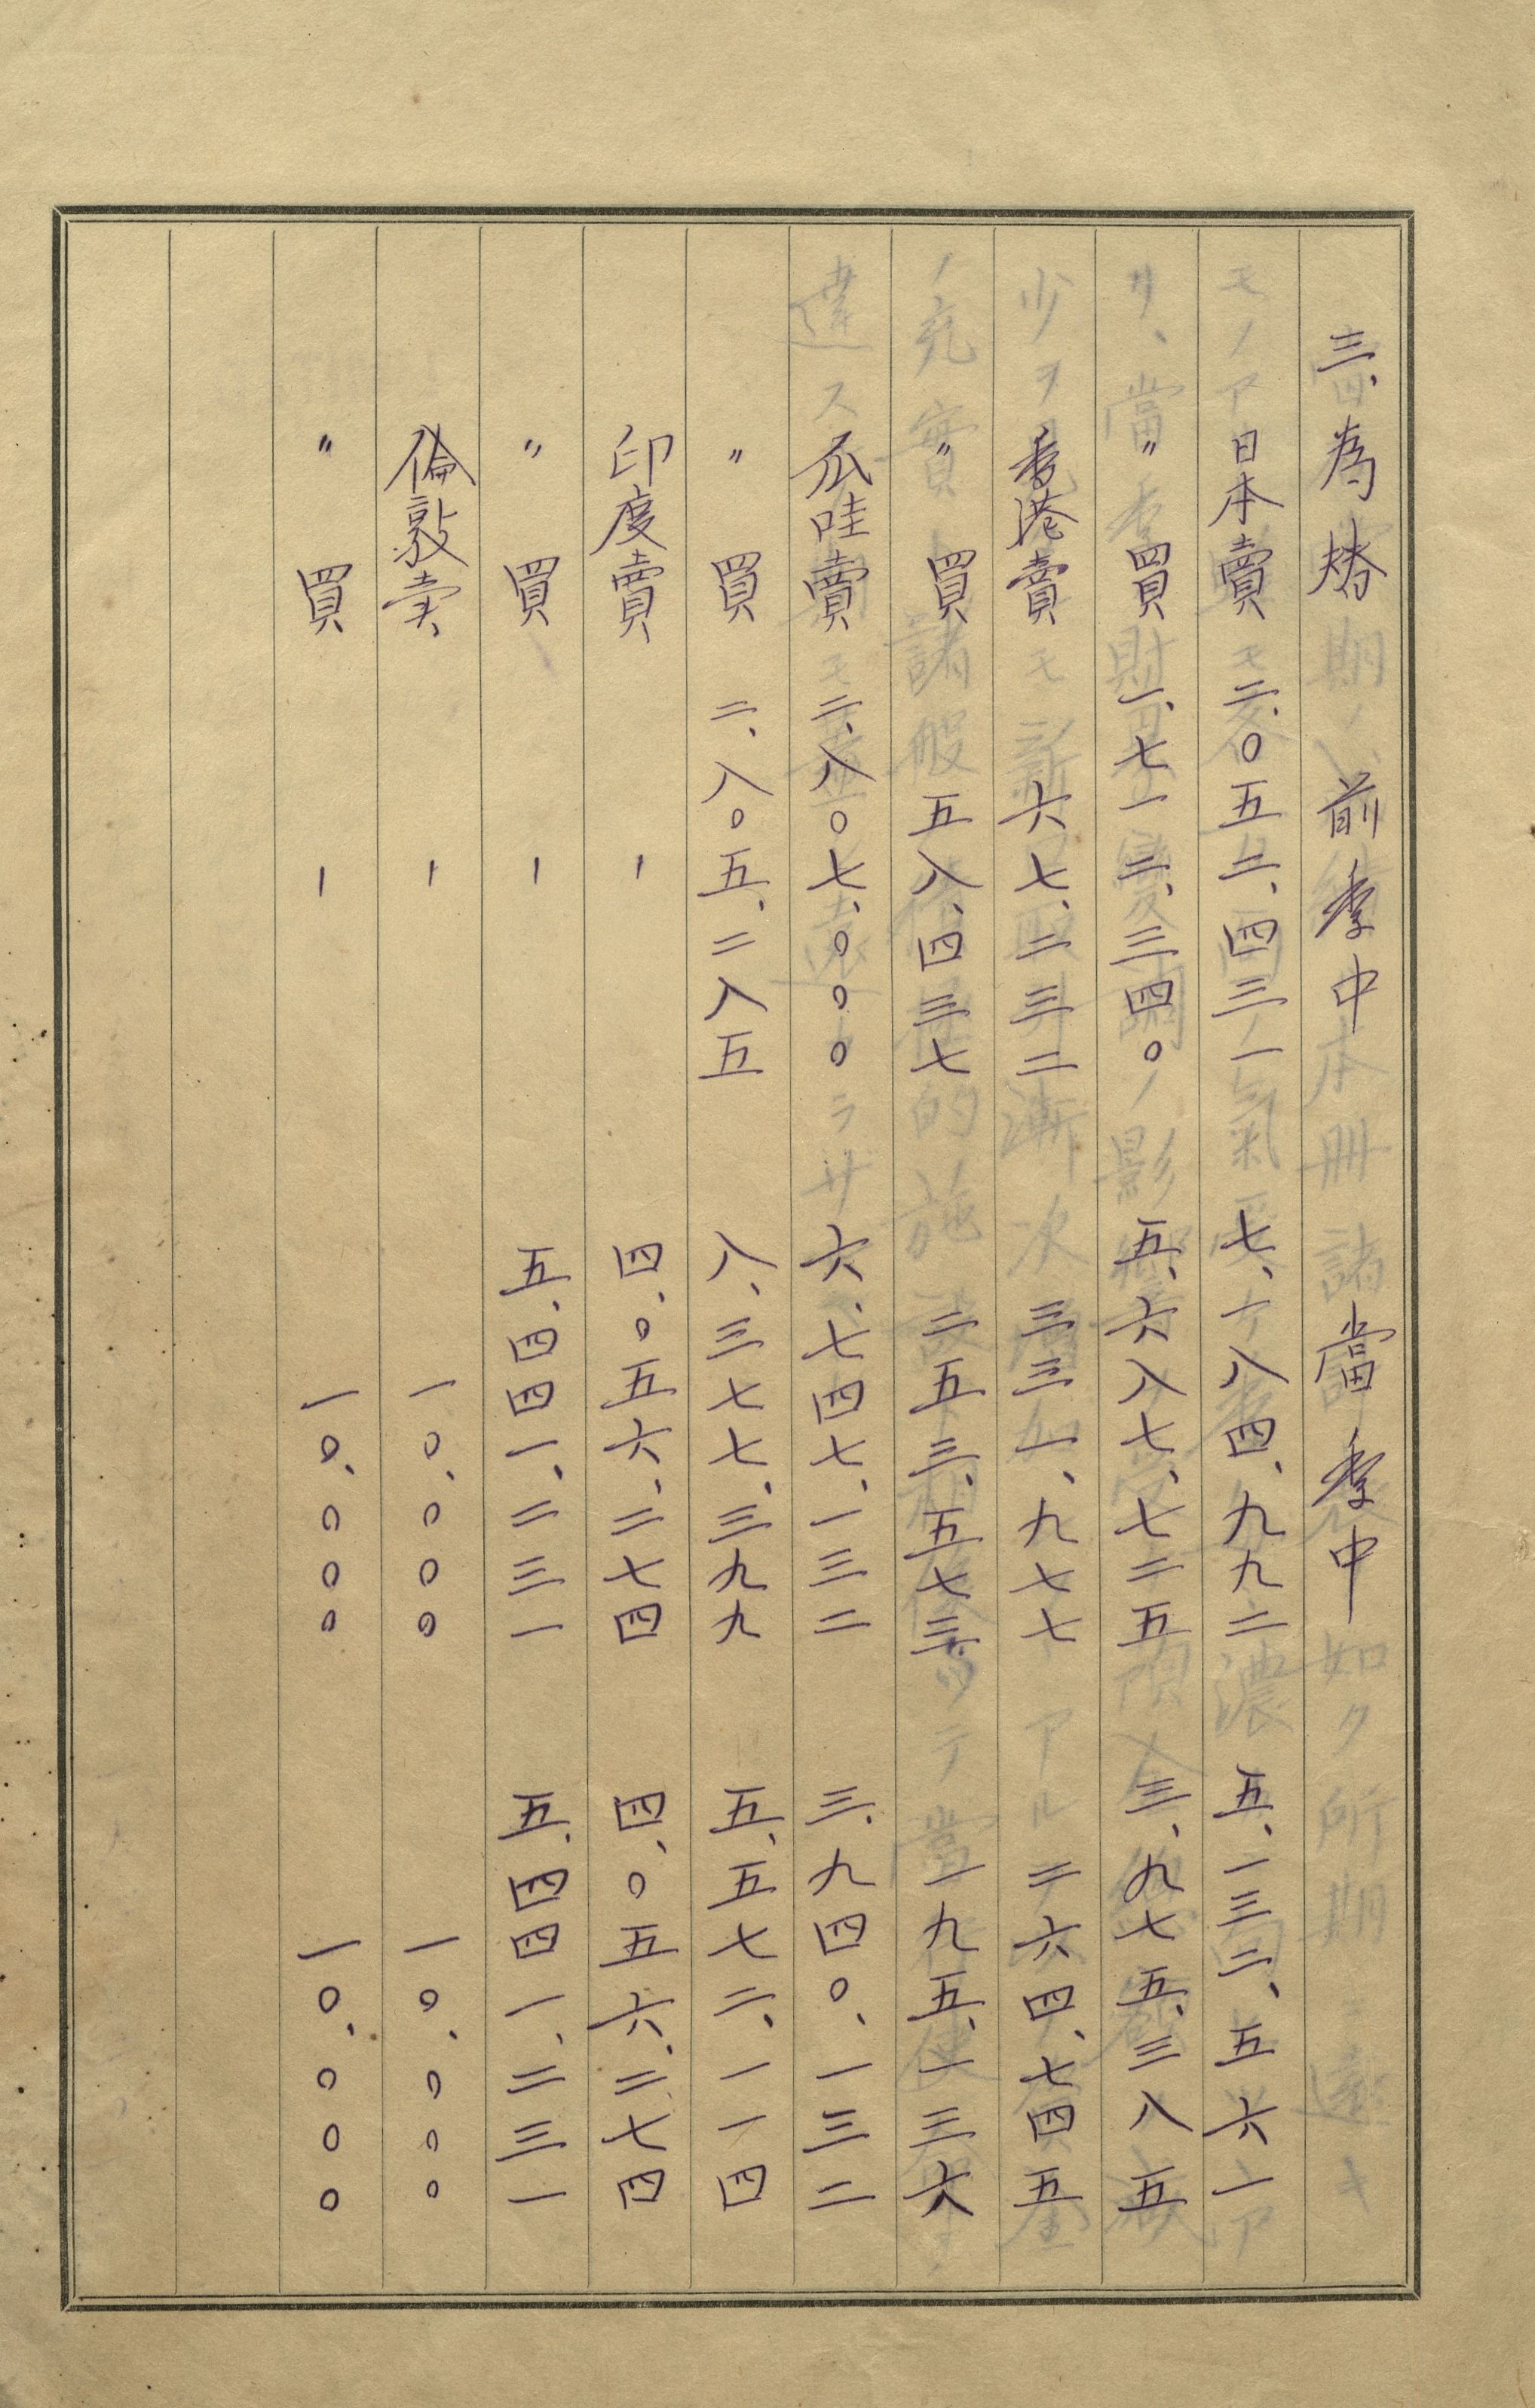 三、為替　前季中　當季中
日本賣　二、〇五二、四三一　七、一八四、九九二　五、一三二、五六一
〃買　一、七一二、三四〇　五、六八七、七二五　三、九七五、三八五
香港賣　六七、二三二　三三一、九七七　二六四、七四五
〃買　五八、四三七　二五三、五七三　一九五、一三六
爪哇賣　二、八〇七、〇〇〇　六、七四七、一三二　三、九四〇、一三二
〃買　二、八〇五、二八五　八、三七七、三九九　五、五七二、一一四
印度賣　―　四、〇五六、二七四　四、〇五六、二七四
〃買　―　五、四四一、二三一　五、四四一、二三一
倫敦卖　―　一〇、〇〇〇　一〇、〇〇〇
〃買　―　一〇、〇〇〇　一〇、〇〇〇